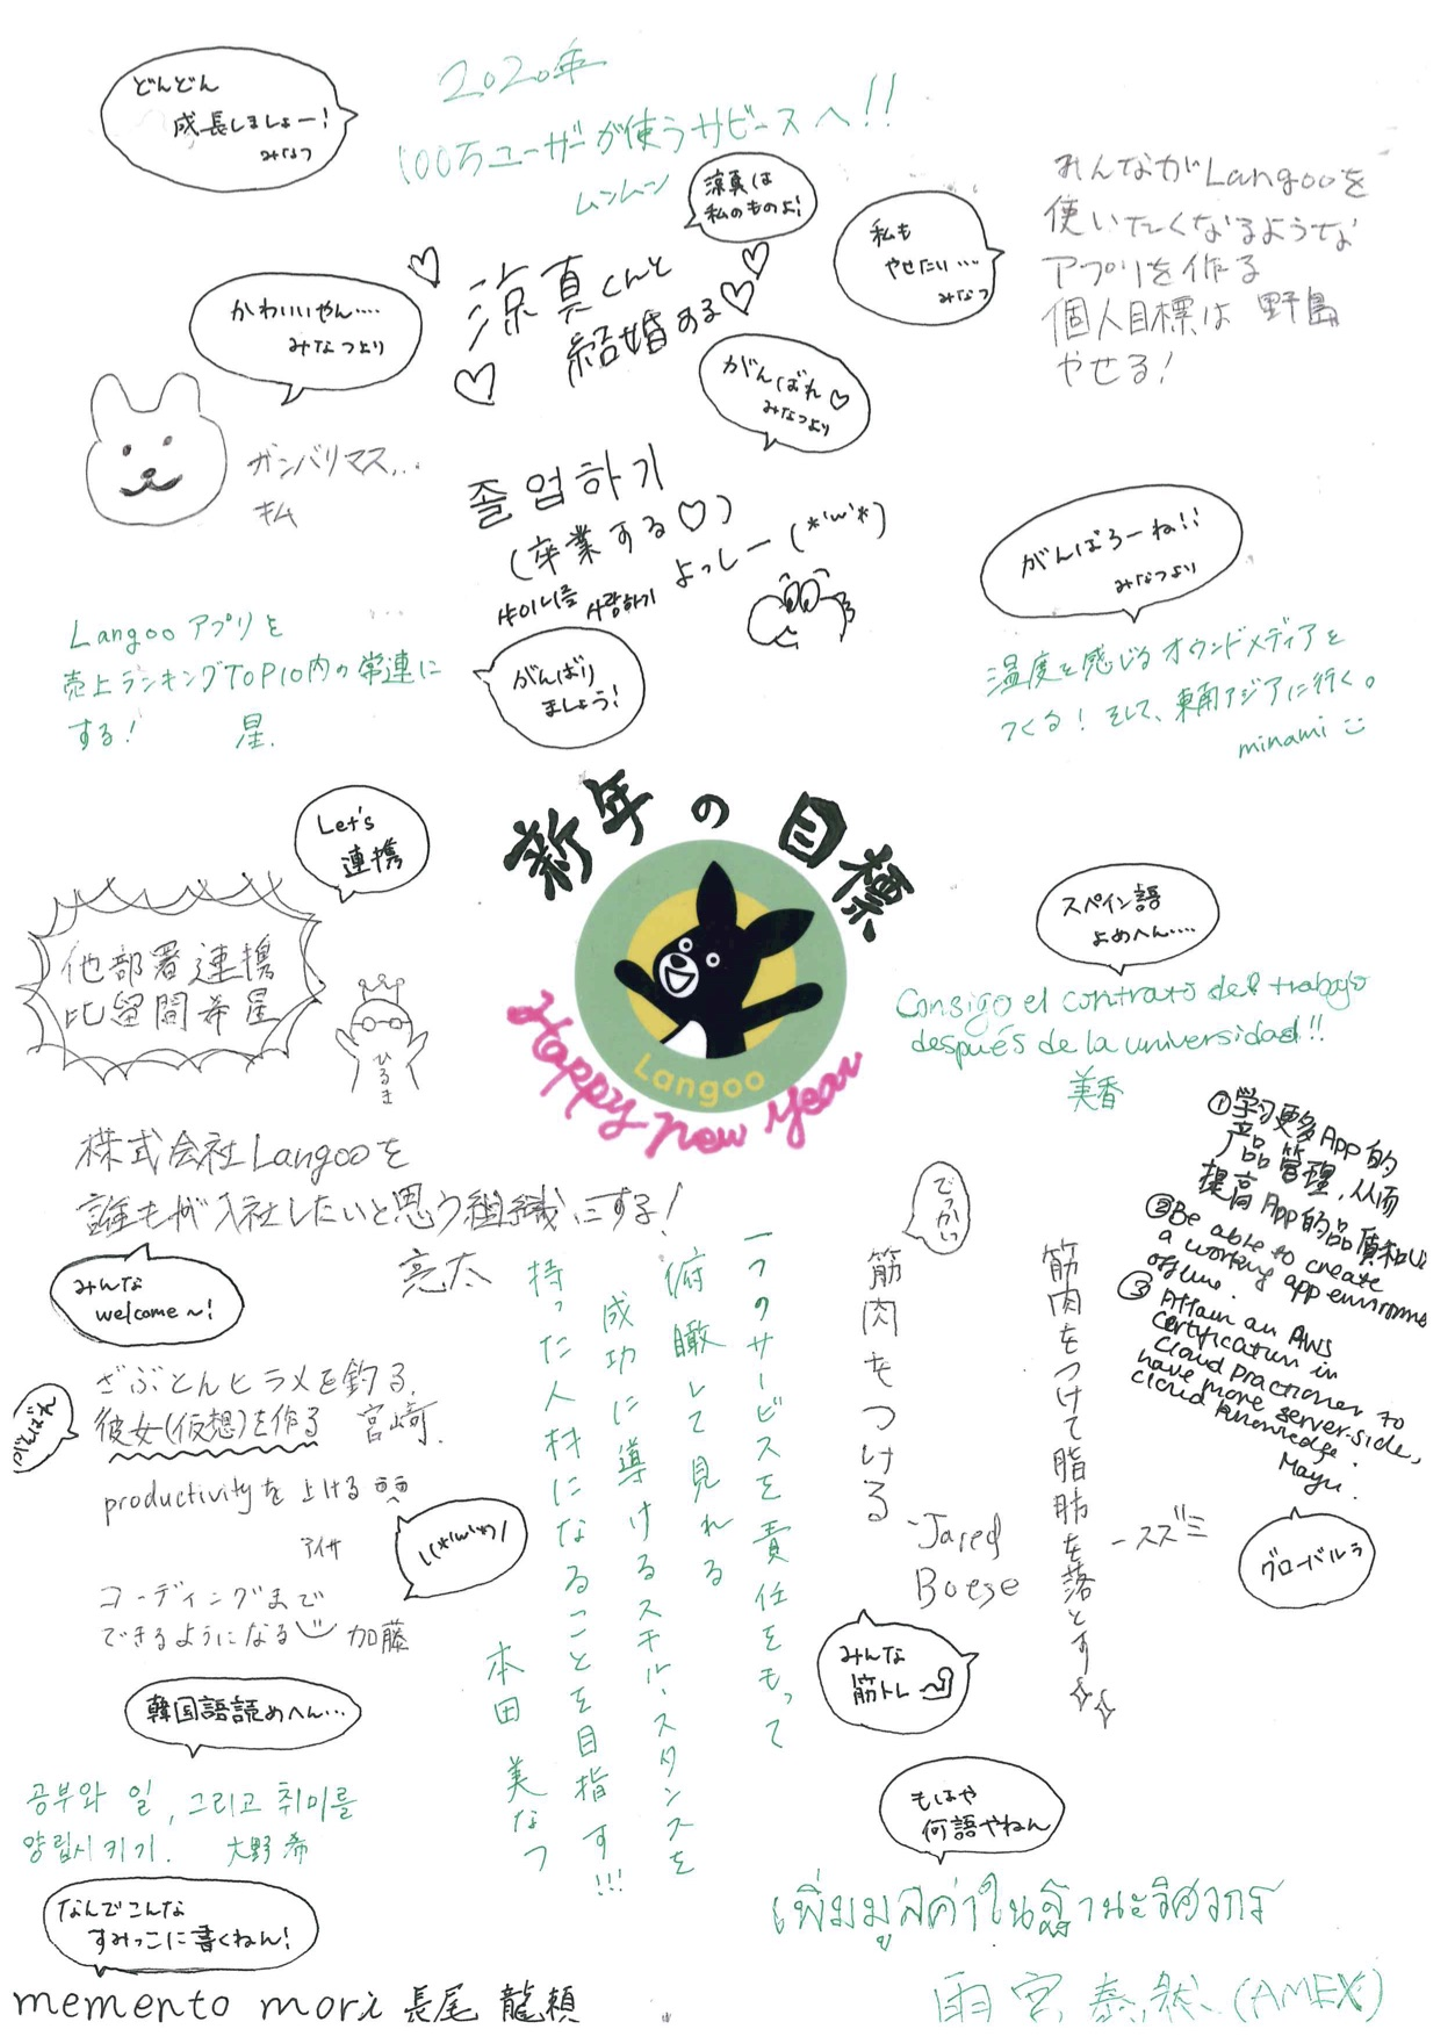 どんどん
成長しましょー!
みなつ
2020年
100万ユーザーが使うサビースへ!!
ムンムン
涼真は
私のものよ!
私も
やせたい…
みなつ
みんながLangooを
使いたくなるような
アプリを作る
個人目標は 野島
やせる!
かわいいやん….
みなつより
涼真くんと
結婚する
がんばれ♡
みなつより
ガンバリマス...
キム
졸업하기
(卒業する♡)
よっしー(*'ω'*)
사랑하기
がんばろーね!!
みなつより
Langooアプリを
売上ランキングTOP10内の常連に
する! 星.
がんばり
ましょう!
温度を感じるオウンドメディアを
つくる! そして、東南アジアに行く。
minami
新年の目標
Langoo
Happy new year
Let's
連携
他部署連携
比留間希星
ひるき
スペイン語
よめへん….
Consigo el contrato del trabajo
después de la universidad!!
美香
株式会社Langooを
誰もが入社したいと思う組織にする!
亮太
みんな
welcome~!
①学习更多App的
产品管理,从而
提高App的品質和
②Be able to create
a working app environme
offline.
③Attain an AWS
certification in
Cloud Practioner to
have more server-side,
cloud knowledge.
Mayu.
グローバルぅ
ざぶとんヒラメを釣る.
彼女(仮想)を作る 宮﨑.
がんばれ
productivityを上げる
アイサ
\(*'ω'*)/
コーディングまで
できるようになる 加藤
一つのサービスを責任をもって
俯瞰して見れる
成功に導けるスキル、スタンスを
持った人材になることを目指す!!!
本田 美なつ
でっかいっ
筋肉をつける
-Jared
Boese
みんな
筋トレ
筋肉をつけて脂肪を落とす
-スズミ
韓国語読めへん…
공부와 일, 그리고 취미를
양립시키기. 大野 希
もはや
何語やねん
เพิ่มมูลค่าในฐานะวิศวกร
雨宮 泰然 (AMEX)
なんでこんな
すみっこに書くねん!
memento mori 長尾 龍頼